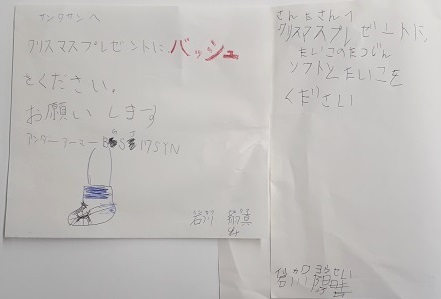 サンタサンへ
クリスマスプレゼントに バッシュ
をください。
お願いします
アンダーアーマー
さんたさんへ
クリスマスプレゼートに、
たいこのたつじん
ソフトとたいこを
ください